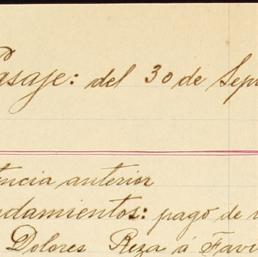 asaje: del 30 de Sep
tencia anterior
damientos: pago de
Dolores Reza á Fav